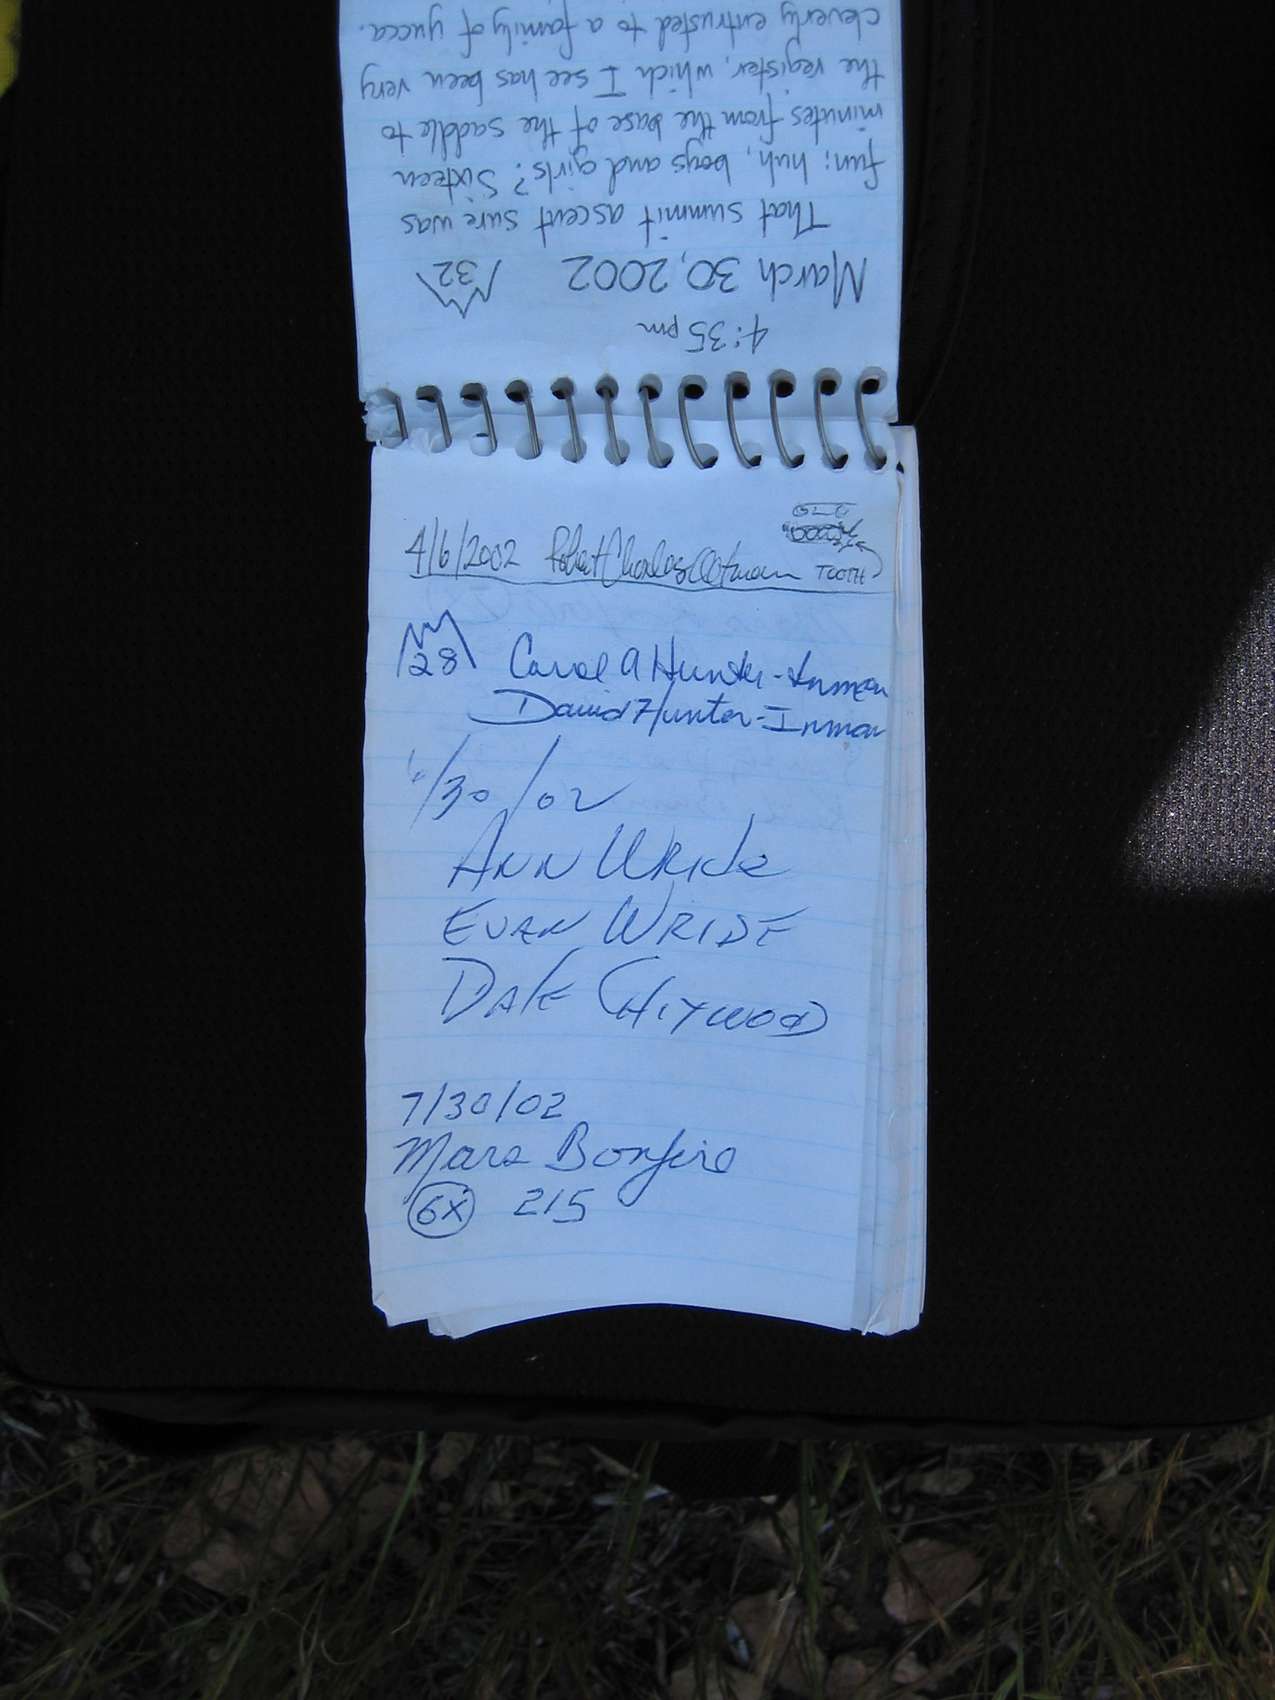 4:35pm
March 30, 2002 32
That summit ascent sure was
fun; huh, boys and girls? Sixteen
minutes from the base of the saddle to
the register, which I see has been very
cleverly entrusted to a family of yucca.
4/6/2002 Robert Charles
TOOTH
28 Carol A Hunter-Inman
David Hunter-Inman
/30/02
ANN WRIDE
EVAN WRIDE
DALE CHITWOOD
7/30/02
Mars Bonfire
6X 215